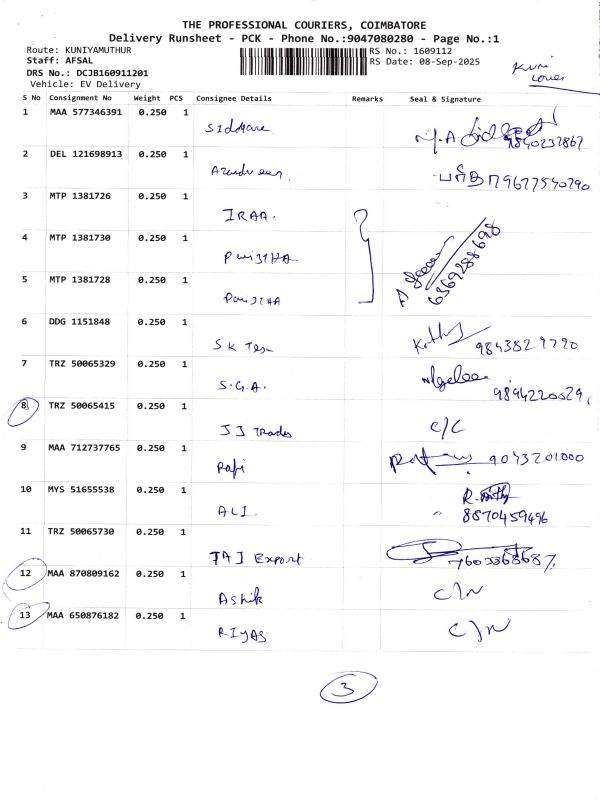 THE PROFESSIONAL COURIERS, COIMBATORE
Delivery Runsheet - PCK - Phone No.:9047080280 - Page No.:1
Route: KUNIYAMUTHUR RS No.: 1609112
Staff: AFSAL RS Date: 08-Sep-2025
DRS No.: DCJB160911201
Vehicle: EV Delivery
S No Consignment No Weight PCS Consignee Details Remarks Seal & Signature
1 MAA 577346391 0.250 1
9840232867
2 DEL 121698913 0.250 1
9677540290
3 MTP 1381726 0.250 1
IRAA.
4 MTP 1381730 0.250 1
5 MTP 1381728 0.250 1
6369288698
6 DDG 1151848 0.250 1
S K
7 TRZ 50065329 0.250 1
S.G.A.
8 TRZ 50065415 0.250 1
JJ Trades C/C
9 MAA 712737765 0.250 1
Rafi 9043201000
10 MYS 51655538 0.250 1
ALI. 8870459496
11 TRZ 50065730 0.250 1
TAJ Export
12 MAA 870809162 0.250 1
Ashik C/N
13 MAA 650876182 0.250 1
RIYAS C/N
3